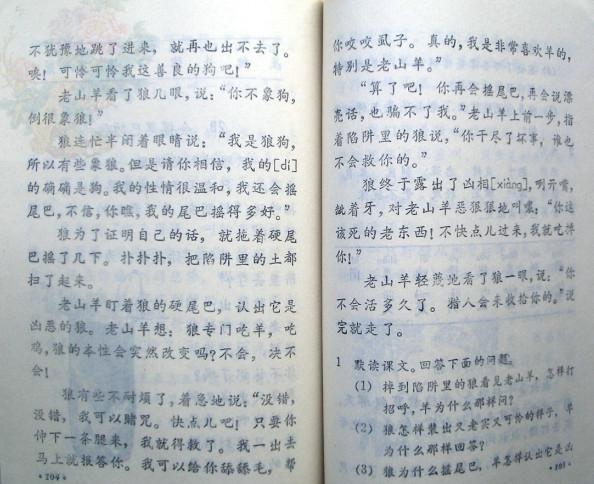 不犹豫地跳了进来，就再也出不去了。
唉！可怜可怜我这善良的狗吧！”
老山羊看了狼几眼，说：“你不象狗，
倒很象狼！”
狼连忙半闭着眼睛说：“我是狼狗，
所以有些象狼。但是请你相信，我的[dí]
的确确是狗。我的性情很温和，我还会摇
尾巴，不信，你瞧，我的尾巴摇得多好。”
狼为了证明自己的话，就拖着硬尾
巴摇了几下。扑扑扑，把陷阱里的土都
扫了起来。
老山羊盯着狼的硬尾巴，认出它是
凶恶的狼。老山羊想：狼专门吃羊，吃
鸡，狼的本性会突然改变吗？不会，决不
会！
狼有些不耐烦了，着急地说：“没错，
没错，我可以赌咒。快点儿吧！只要你
伸下一条腿来，我就得救了。我一出去
马上就报答你。我可以给你舔舔毛，帮
·104·
你咬咬虱子。真的，我是非常喜欢羊的，
特别是老山羊。”
“算了吧！你再会摇尾巴，再会说漂
亮话，也骗不了我。”老山羊上前一步，指
着陷阱里的狼说，“你干尽了坏事，谁也
不会救你的。”
狼终于露出了凶相[xiàng]，咧开嘴，
龇着牙，对老山羊恶狠狠地叫嚷：“你这
该死的老东西！不快点儿过来，我就吃掉
你！”
老山羊轻蔑地看了狼一眼，说：“你
不会活多久了。猎人会来收拾你的。”说
完就走了。
1 默读课文。回答下面的问题。
(1) 掉到陷阱里的狼看见老山羊，怎样打
招呼，羊为什么那样问？
(2) 狼怎样装出又老实又可怜的样子，羊
为什么那样回答？
(3) 狼为什么摇尾巴，羊怎样认出它是凶